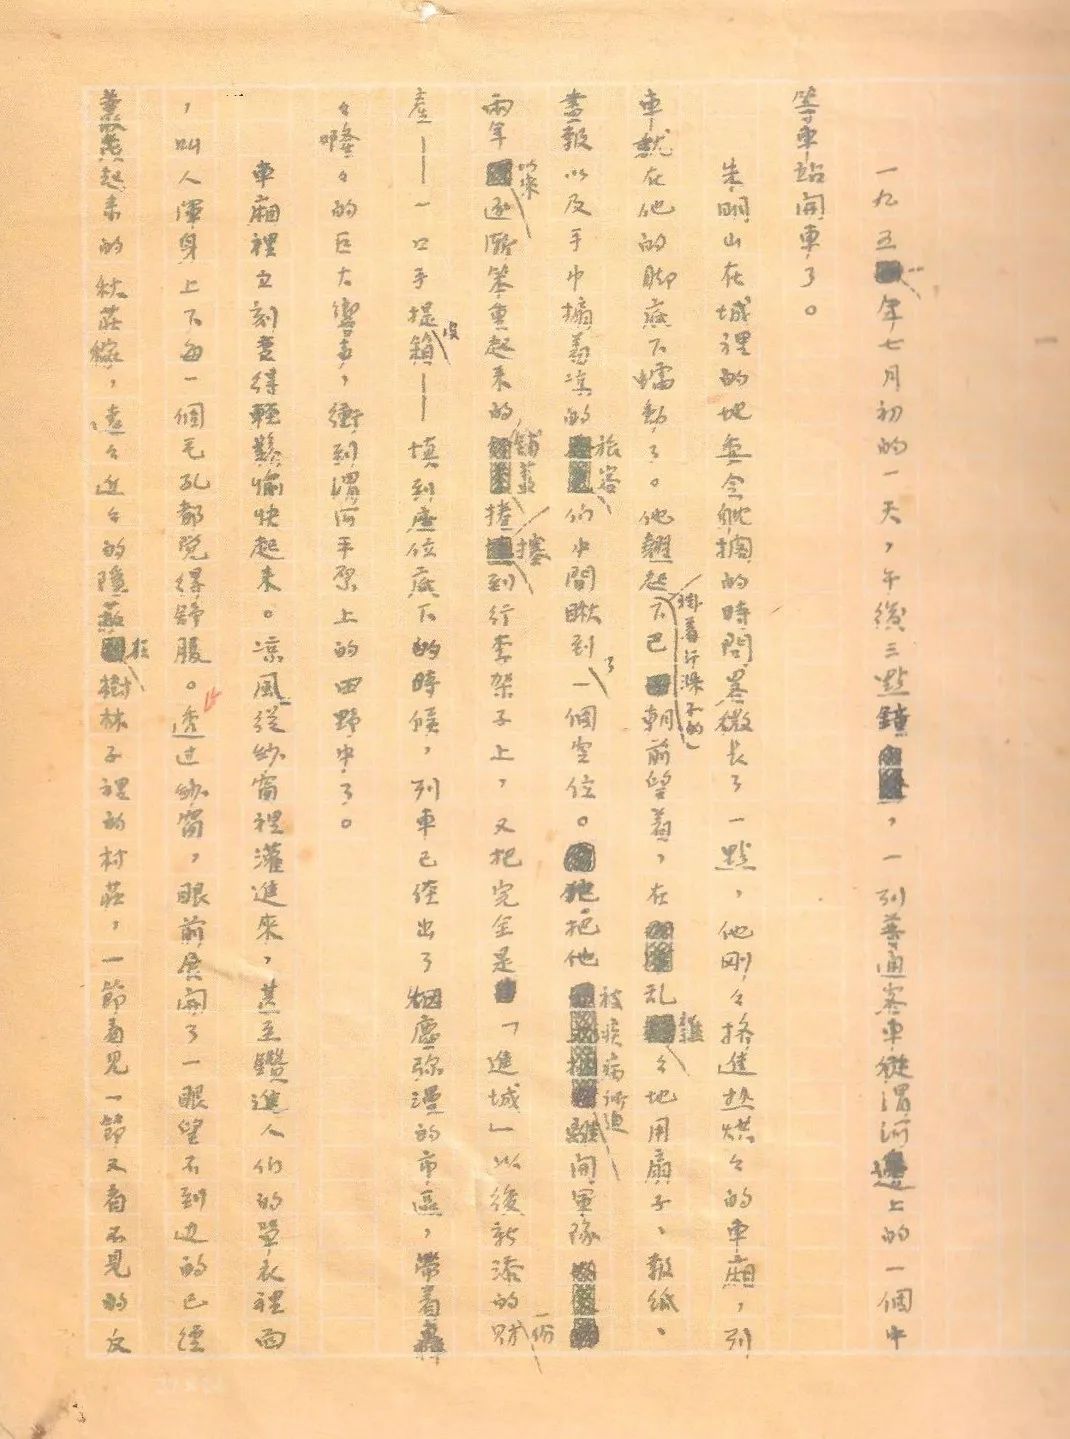 一
一九五一年七月初的一天，午後三點鐘，一列普通客車從渭河邊上的一個中
等車站開車了。
朱明山在城裡的地委会躭擱的時間畧微長了一點，他剛々挤進热烘々的車廂，列
車就在他的脚底下蠕動了。他翹起掛着汗珠子的下巴朝前望着，在乱雜々地用扇子、報紙、
畫報以及手巾搧着凉的旅客们中間瞅到了一個空位。他把他被疾病所迫離開軍隊
兩年以來逐漸笨重起来的鋪盖捲擡到行李架子上，又把完全是「進城」以後新添的一份財
產——一口手提皮箱——填到座位底下的時候，列車已经出了烟塵弥漫的市區，帶着轟
々嚨々的巨大響声，衝到渭河平原上的田野中了。
車廂裡立刻变得輕鬆愉快起来。凉風從紗窗裡灌進來，甚至鑽進人们的單衣裡面
，叫人渾身上下每一個毛孔都覚得舒服。透过紗窗，眼前展開了一眼望不到边的已經
起来的秋莊稼，遠々近々的隱蔽在樹林子裡的村莊，一節看見一節又看不見的